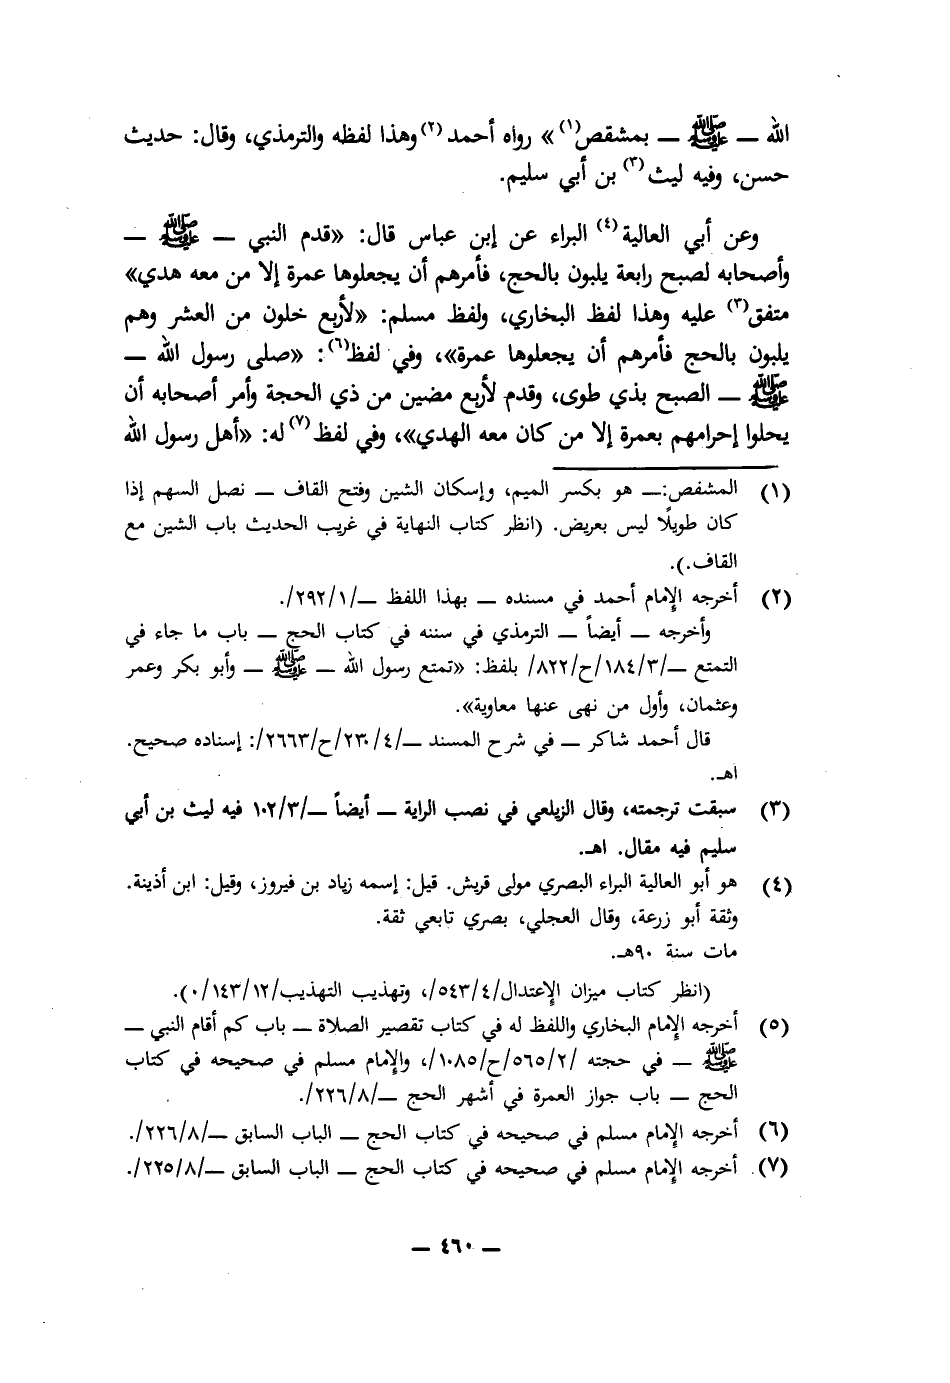 الله — ﷺ — بمشقص(١)» رواه أحمد(٢) وهذا لفظه والترمذي، وقال: حديث
حسن، وفيه ليث(٣) بن أبي سليم.
وعن أبي العالية(٤) البراء عن إبن عباس قال: «قدم النبي — ﷺ —
وأصحابه لصبح رابعة يلبون بالحج، فأمرهم أن يجعلوها عمرة إلا من معه هدي»
متفق(٣) عليه وهذا لفظ البخاري، ولفظ مسلم: «لأربع خلون من العشر وهم
يلبون بالحج فأمرهم أن يجعلوها عمرة»، وفي لفظ(٦): «صلى رسول الله —
ﷺ — الصبح بذي طوى، وقدم لأربع مضين من ذي الحجة وأمر أصحابه أن
يحلوا إحرامهم بعمرة إلا من كان معه الهدي»، وفي لفظ(٧) له: «أهل رسول الله
(١) المشفص:— هو بكسر الميم، وإسكان الشين وفتح القاف — نصل السهم إذا
كان طويلًا ليس بعريض. (انظر كتاب النهاية في غريب الحديث باب الشين مع
القاف.).
(٢) أخرجه الإمام أحمد في مسنده — بهذا اللفظ —/٢٩٢/١/.
وأخرجه — أيضاً — الترمذي في سننه في كتاب الحج — باب ما جاء في
التمتع —/١٨٤/٣/ح/٨٢٢/ بلفظ: «تمتع رسول الله — ﷺ — وأبو بكر وعمر
وعثمان، وأول من نهى عنها معاوية».
قال أحمد شاكر — في شرح المسند —/٢٣٠/٤/ح/٢٦٦٣/: إسناده صحيح.
اهـ.
(٣) سبقت ترجمته، وقال الزيلعي في نصب الراية — أيضاً —/١٠٢/٣ فيه ليث بن أبي
سليم فيه مقال. اهـ.
(٤) هو أبو العالية البراء البصري مولى قريش. قيل: إسمه زياد بن فيروز، وقيل: ابن أذينة.
وثقة أبو زرعة، وقال العجلي، بصري تابعي ثقة.
مات سنة ٩٠هـ.
(انظر كتاب ميزان الإعتدال/٥٤٣/٤/، وتهذيب التهذيب/١٤٣/١٢/٠).
(٥) أخرجه الإمام البخاري واللفظ له في كتاب تقصير الصلاة — باب كم أقام النبي —
ﷺ — في حجته /٥٦٥/٢/ح/١٠٨٥/، والإمام مسلم في صحيحه في كتاب
الحج — باب جواز العمرة في أشهر الحج —/٢٢٦/٨/.
(٦) أخرجه الإمام مسلم في صحيحه في كتاب الحج — الباب السابق —/٢٢٦/٨/.
(٧) أخرجه الإمام مسلم في صحيحه في كتاب الحج — الباب السابق —/٢٢٥/٨/.
— ٤٦٠ —